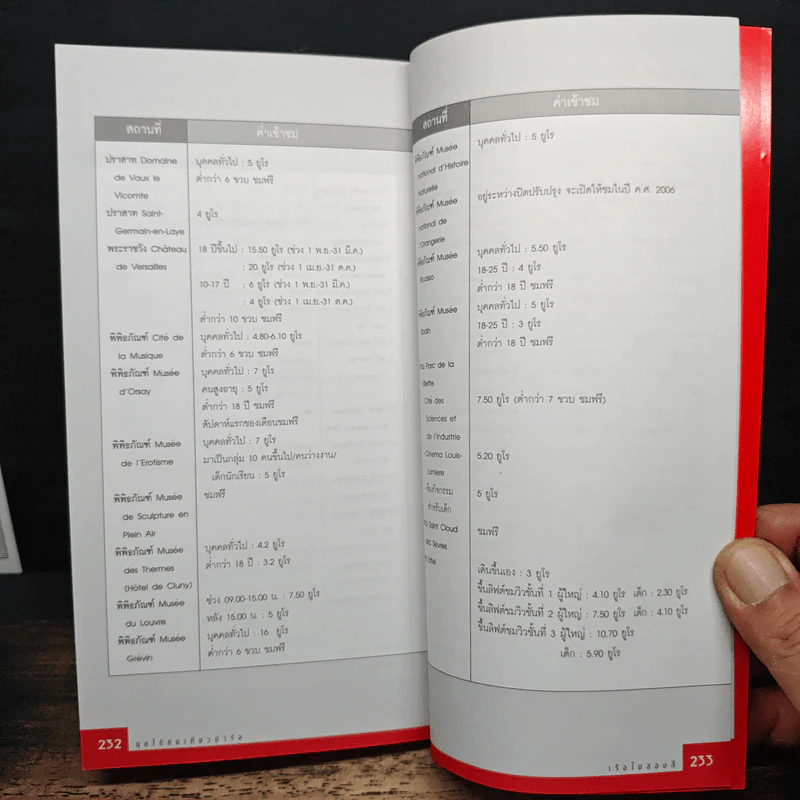 สถานที่ ค่าเข้าชม
ปราสาท Domaine บุคคลทั่วไป : 5 ยูโร
de Vaux le ต่ำกว่า 6 ขวบ ชมฟรี
Vicomte
ปราสาท Saint- 4 ยูโร
Germain-en-Laye
พระราชวัง Château 18 ปีขึ้นไป : 15.50 ยูโร (ช่วง 1 พ.ย.-31 มี.ค.)
de Versailles : 20 ยูโร (ช่วง 1 เม.ย.-31 ต.ค.)
10-17 ปี : 6 ยูโร (ช่วง 1 พ.ย.-31 มี.ค.)
: 4 ยูโร (ช่วง 1 เม.ย.-31 ต.ค.)
ต่ำกว่า 10 ขวบ ชมฟรี
พิพิธภัณฑ์ Cité de บุคคลทั่วไป : 4.80-6.10 ยูโร
la Musique ต่ำกว่า 6 ขวบ ชมฟรี
พิพิธภัณฑ์ Musée บุคคลทั่วไป : 7 ยูโร
d'Orsay คนสูงอายุ : 5 ยูโร
ต่ำกว่า 18 ปี ชมฟรี
สัปดาห์แรกของเดือนชมฟรี
พิพิธภัณฑ์ Musée บุคคลทั่วไป : 7 ยูโร
de l'Erotisme มาเป็นกลุ่ม 10 คนขึ้นไป/คนว่างงาน/
เด็กนักเรียน : 5 ยูโร
พิพิธภัณฑ์ Musée ชมฟรี
de Sculpture en
Plein Air
พิพิธภัณฑ์ Musée บุคคลทั่วไป : 4.2 ยูโร
des Thermes ต่ำกว่า 18 ปี : 3.2 ยูโร
(Hôtel de Cluny)
พิพิธภัณฑ์ Musée ช่วง 09.00-15.00 น. : 7.50 ยูโร
du Louvre หลัง 15.00 น. : 5 ยูโร
พิพิธภัณฑ์ Musée บุคคลทั่วไป : 16 ยูโร
Grévin ต่ำกว่า 6 ขวบ ชมฟรี
232
สถานที่ ค่าเข้าชม
Musée บุคคลทั่วไป : 5 ยูโร
d'Histoire
Naturelle
Musée อยู่ระหว่างปิดปรับปรุง จะเปิดให้ชมในปี ค.ศ. 2006
de
l'Orangerie
Musée บุคคลทั่วไป : 5.50 ยูโร
Picasso 18-25 ปี : 4 ยูโร
ต่ำกว่า 18 ปี ชมฟรี
Musée บุคคลทั่วไป : 5 ยูโร
Rodin 18-25 ปี : 3 ยูโร
ต่ำกว่า 18 ปี ชมฟรี
Parc de la
Villette
Cité des 7.50 ยูโร (ต่ำกว่า 7 ขวบ ชมฟรี)
Sciences et
de l'Industrie
Cinema Louis- 5.20 ยูโร
Lumiere
5 ยูโร
สำหรับเด็ก
Saint Cloud ชมฟรี
Sèvres
เดินขึ้นเอง : 3 ยูโร
ขึ้นลิฟต์ชมวิวชั้นที่ 1 ผู้ใหญ่ : 4.10 ยูโร เด็ก : 2.30 ยูโร
ขึ้นลิฟต์ชมวิวชั้นที่ 2 ผู้ใหญ่ : 7.50 ยูโร เด็ก : 4.10 ยูโร
ขึ้นลิฟต์ชมวิวชั้นที่ 3 ผู้ใหญ่ : 10.70 ยูโร
เด็ก : 5.90 ยูโร
เรือใบสองลี 233